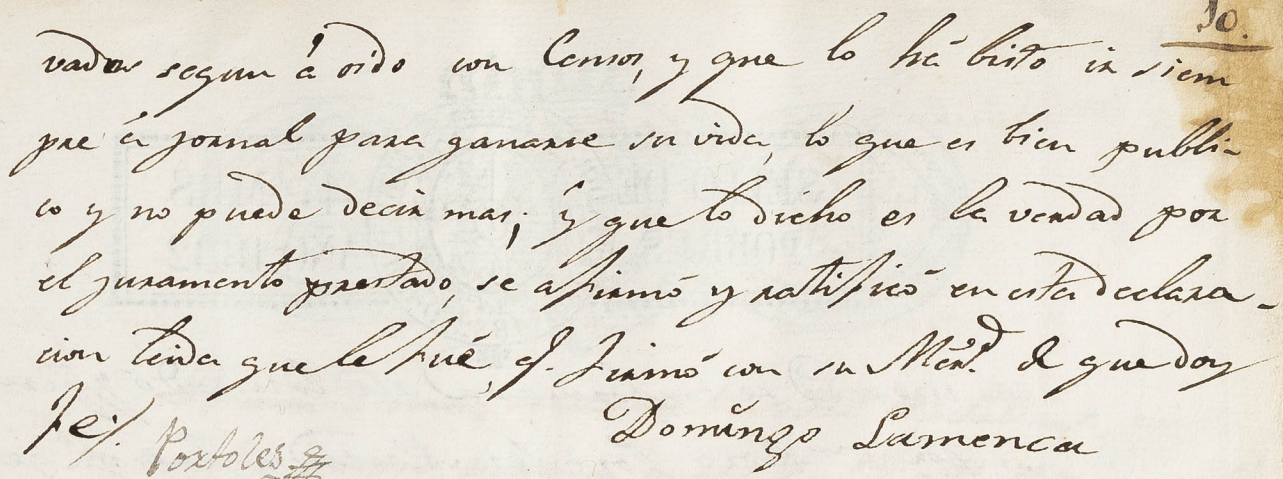 10.
vados segun á oido con Censos, y que lo há bisto ir siem
pre á jornal para ganarse su vida, lo que es bien publi-
co y no puede decir mas; y que lo dicho es la verdad por
el juramento prestado, se afirmó y ratificó en esta declara-
cion leida que le fué, q. firmó con su Mrd. de que doy
fe./.
Domingo Lamenca
Portoles